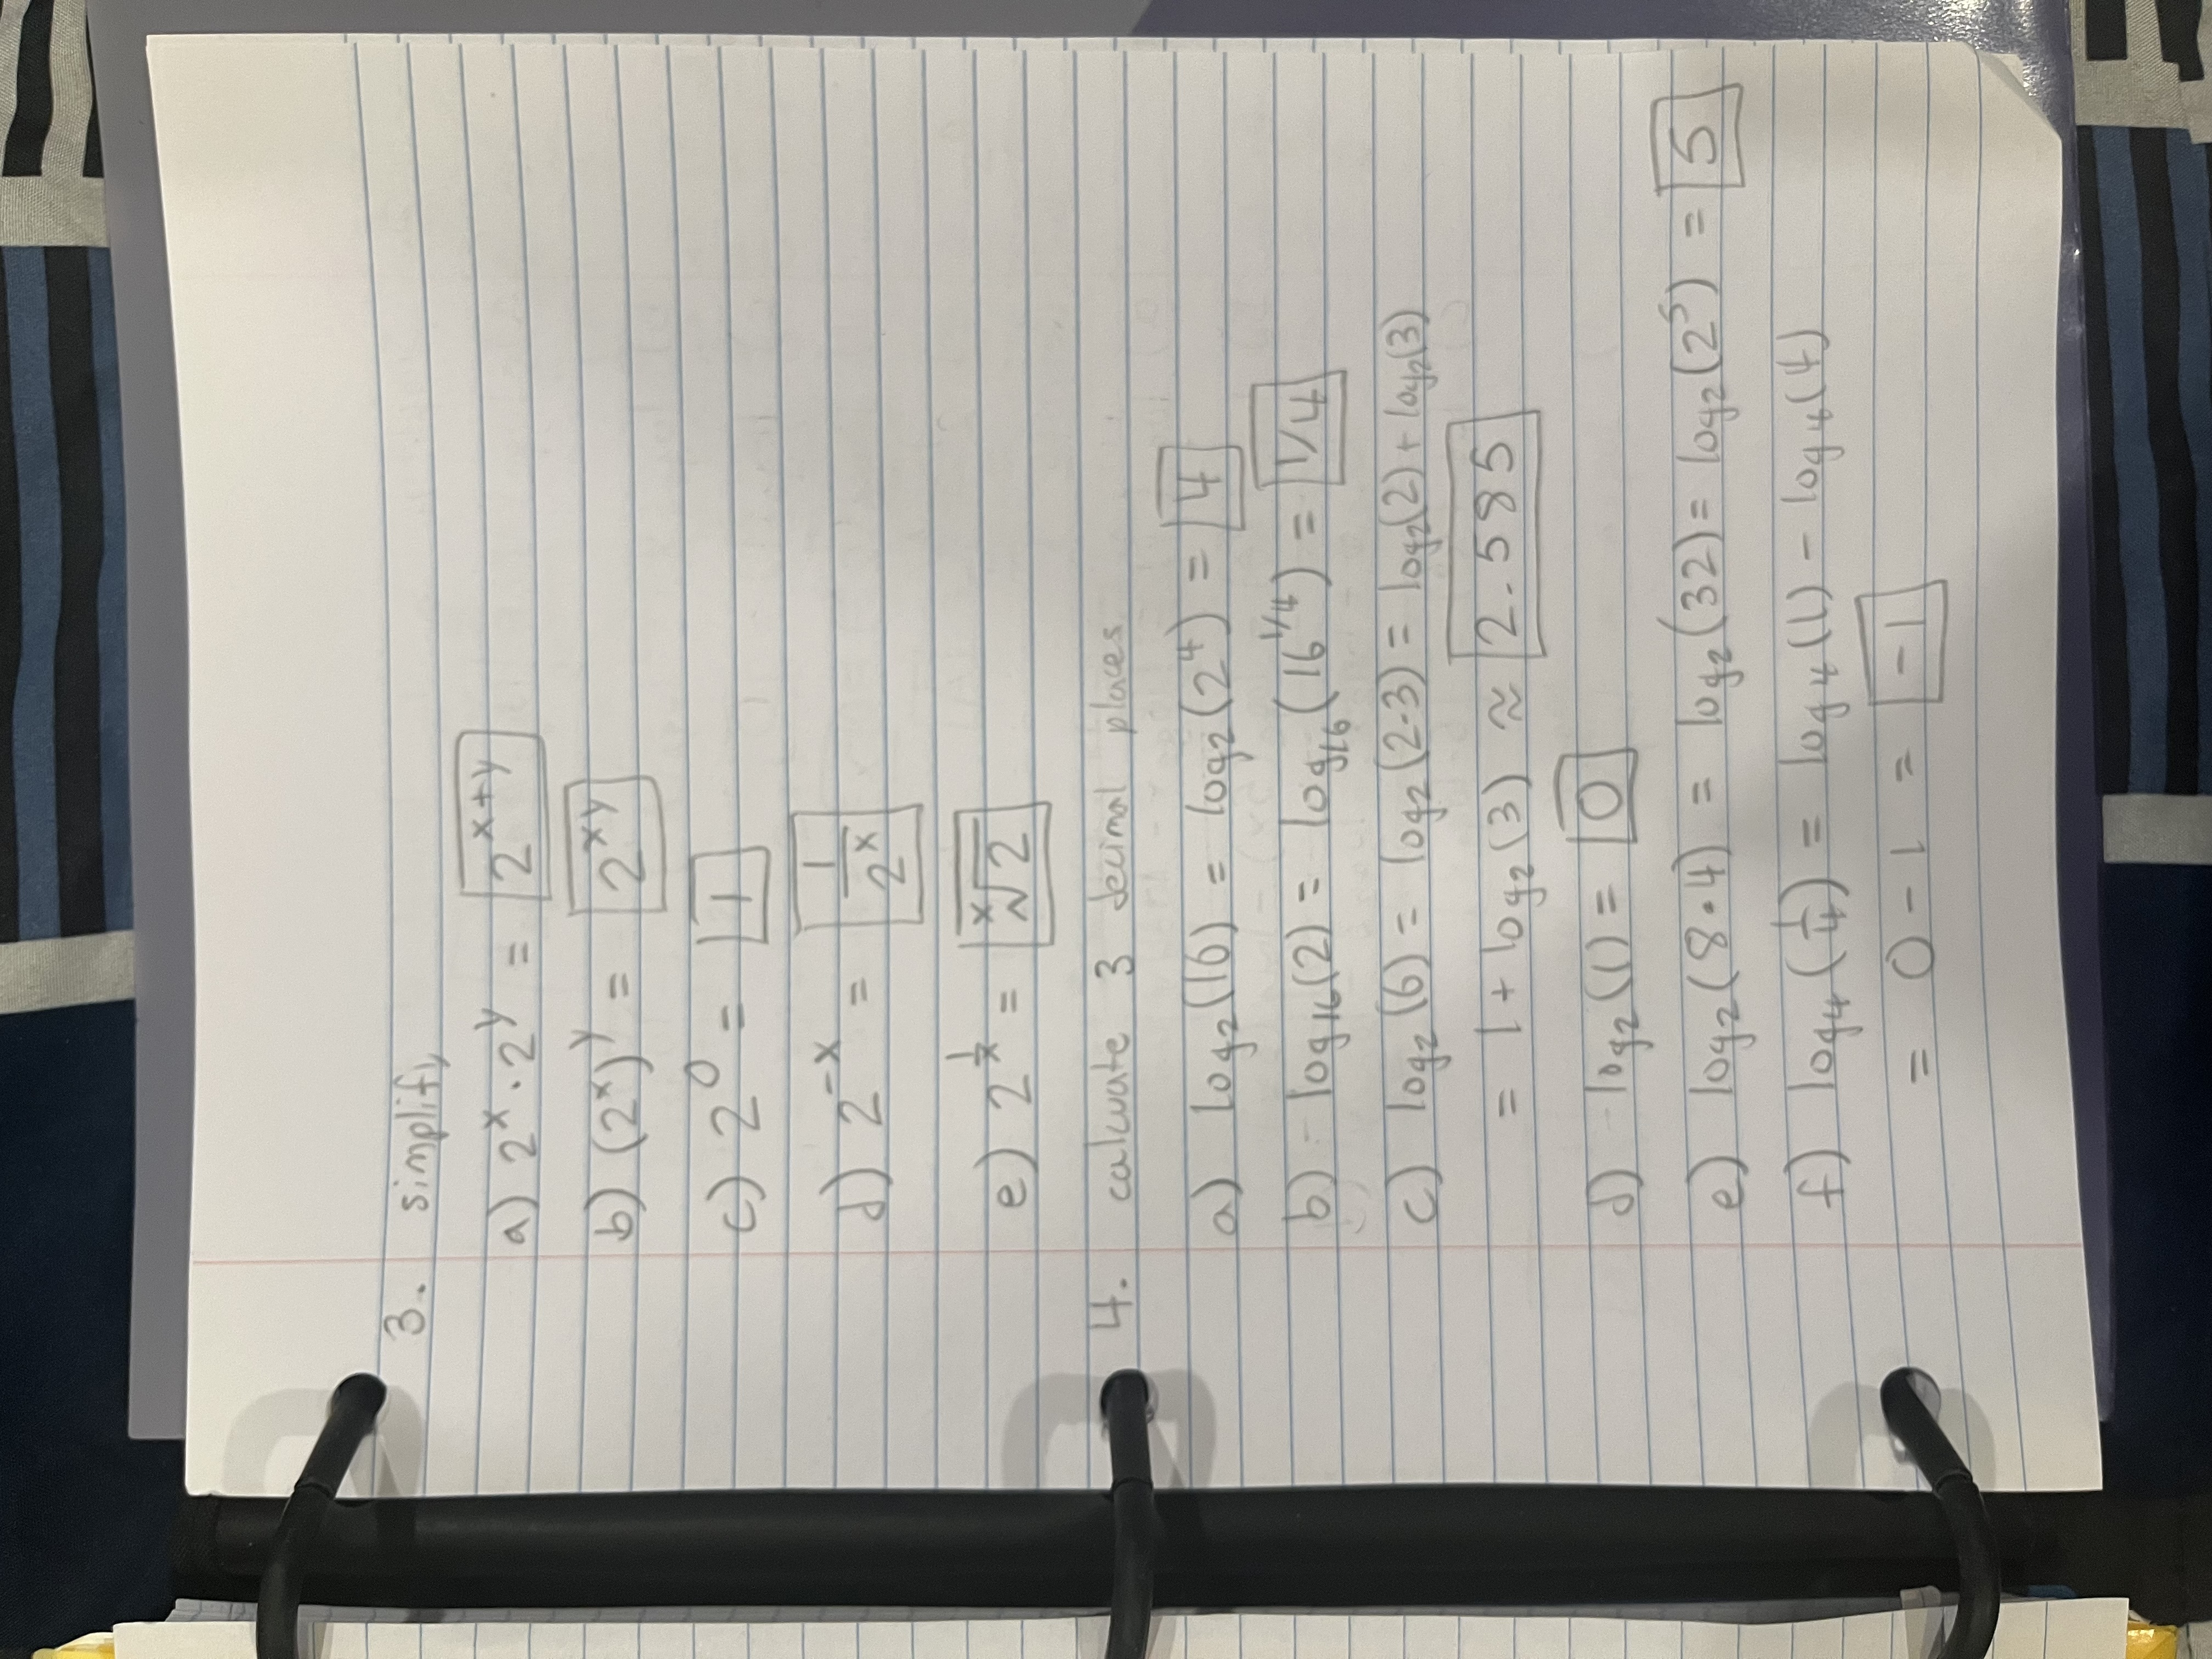 3. simplify
a) 2^x · 2^y = 2^(x+y)
b) (2^x)^y = 2^(xy)
c) 2^0 = 1
d) 2^(-x) = 1/2^x
e) 2^(1/x) = ˣ√2
4. calcuate 3 decimal places
a) log₂(16) = log₂(2⁴) = 4
b) log₁₆(2) = log₁₆(16^(1/4)) = 1/4
c) log₂(6) = log₂(2·3) = log₂(2) + log₂(3)
= 1 + log₂(3) ≈ 2.585
d) log₂(1) = 0
e) log₂(8·4) = log₂(32) = log₂(2⁵) = 5
f) log₄(1/4) = log₄(1) - log₄(4)
= 0 - 1 = -1